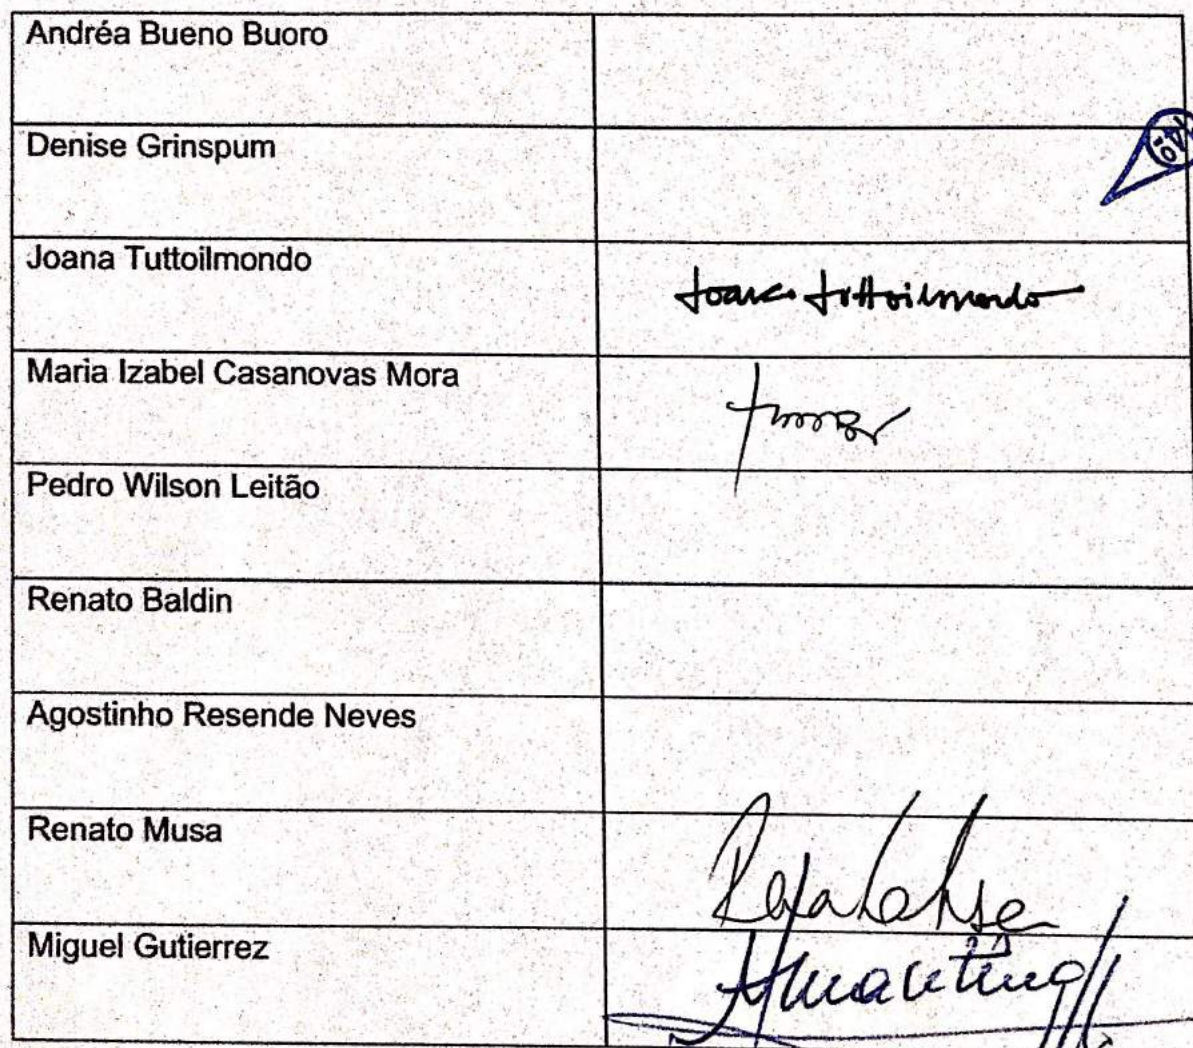 Andréa Bueno Buoro
Denise Grinspum
Joana Tuttoilmondo
Joana Tuttoilmondo
Maria Izabel Casanovas Mora
Pedro Wilson Leitão
Renato Baldin
Agostinho Resende Neves
Renato Musa
Miguel Gutierrez